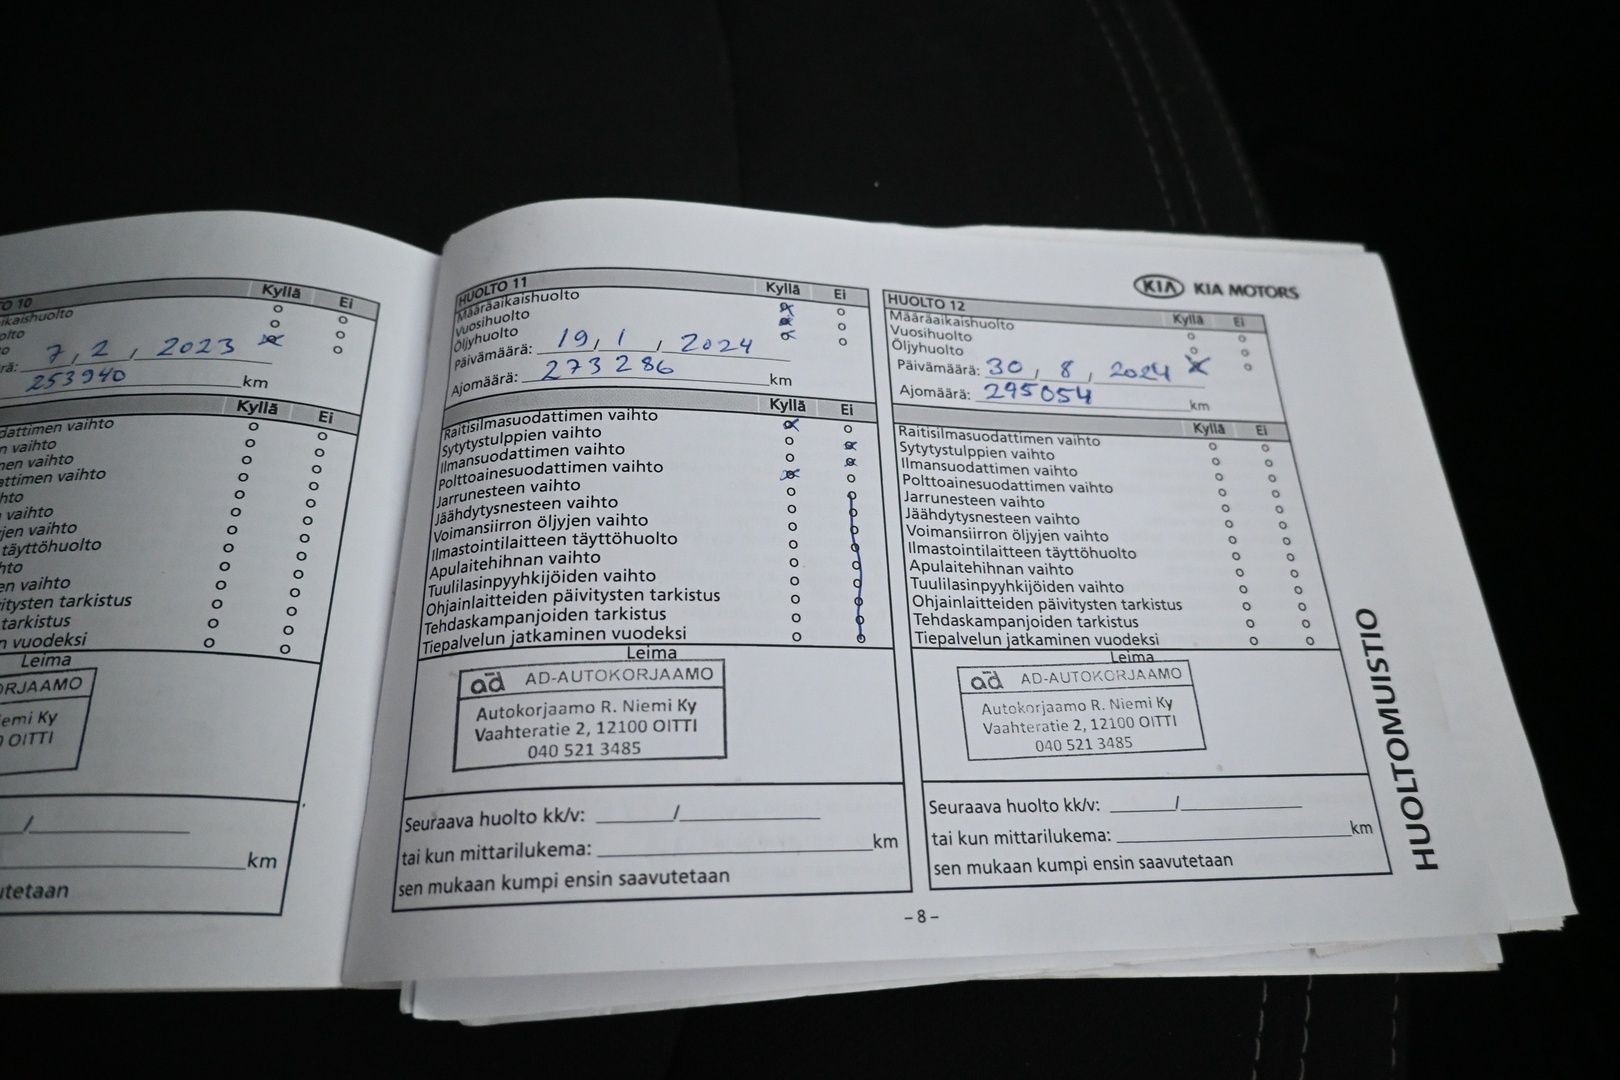 TO 10 Kyllä Ei
ikaishuolto
olto
7, 2, 2023
253940 km
Kyllä Ei
dattimen vaihto
n vaihto
nen vaihto
attimen vaihto
hto
vaihto
jen vaihto
täyttöhuolto
hto
en vaihto
itysten tarkistus
tarkistus
n vuodeksi
Leima
ORJAAMO
emi Ky
OITTI
/
km
utetaan
HUOLTO 11 Kyllä Ei
Määräaikaishuolto
Vuosihuolto
Öljyhuolto
Päivämäärä: 19, 1, 2024
Ajomäärä: 273 286 km
Kyllä Ei
Raitisilmasuodattimen vaihto
Sytytystulppien vaihto
Ilmansuodattimen vaihto
Polttoainesuodattimen vaihto
Jarrunesteen vaihto
Jäähdytysnesteen vaihto
Voimansiirron öljyjen vaihto
Ilmastointilaitteen täyttöhuolto
Apulaitehihnan vaihto
Tuulilasinpyyhkijöiden vaihto
Ohjainlaitteiden päivitysten tarkistus
Tehdaskampanjoiden tarkistus
Tiepalvelun jatkaminen vuodeksi
Leima
ad AD-AUTOKORJAAMO
Autokorjaamo R. Niemi Ky
Vaahteratie 2, 12100 OITTI
040 521 3485
Seuraava huolto kk/v: ______/__________
tai kun mittarilukema: ______________km
sen mukaan kumpi ensin saavutetaan
KIA KIA MOTORS
HUOLTO 12 Kyllä Ei
Määräaikaishuolto
Vuosihuolto
Öljyhuolto
Päivämäärä: 30, 8, 2024
Ajomäärä: 295054 km
Kyllä Ei
Raitisilmasuodattimen vaihto
Sytytystulppien vaihto
Ilmansuodattimen vaihto
Polttoainesuodattimen vaihto
Jarrunesteen vaihto
Jäähdytysnesteen vaihto
Voimansiirron öljyjen vaihto
Ilmastointilaitteen täyttöhuolto
Apulaitehihnan vaihto
Tuulilasinpyyhkijöiden vaihto
Ohjainlaitteiden päivitysten tarkistus
Tehdaskampanjoiden tarkistus
Tiepalvelun jatkaminen vuodeksi
Leima
ad AD-AUTOKORJAAMO
Autokorjaamo R. Niemi Ky
Vaahteratie 2, 12100 OITTI
040 521 3485
Seuraava huolto kk/v: ______/__________
tai kun mittarilukema: ______________km
sen mukaan kumpi ensin saavutetaan
HUOLTOMUISTIO
–8–